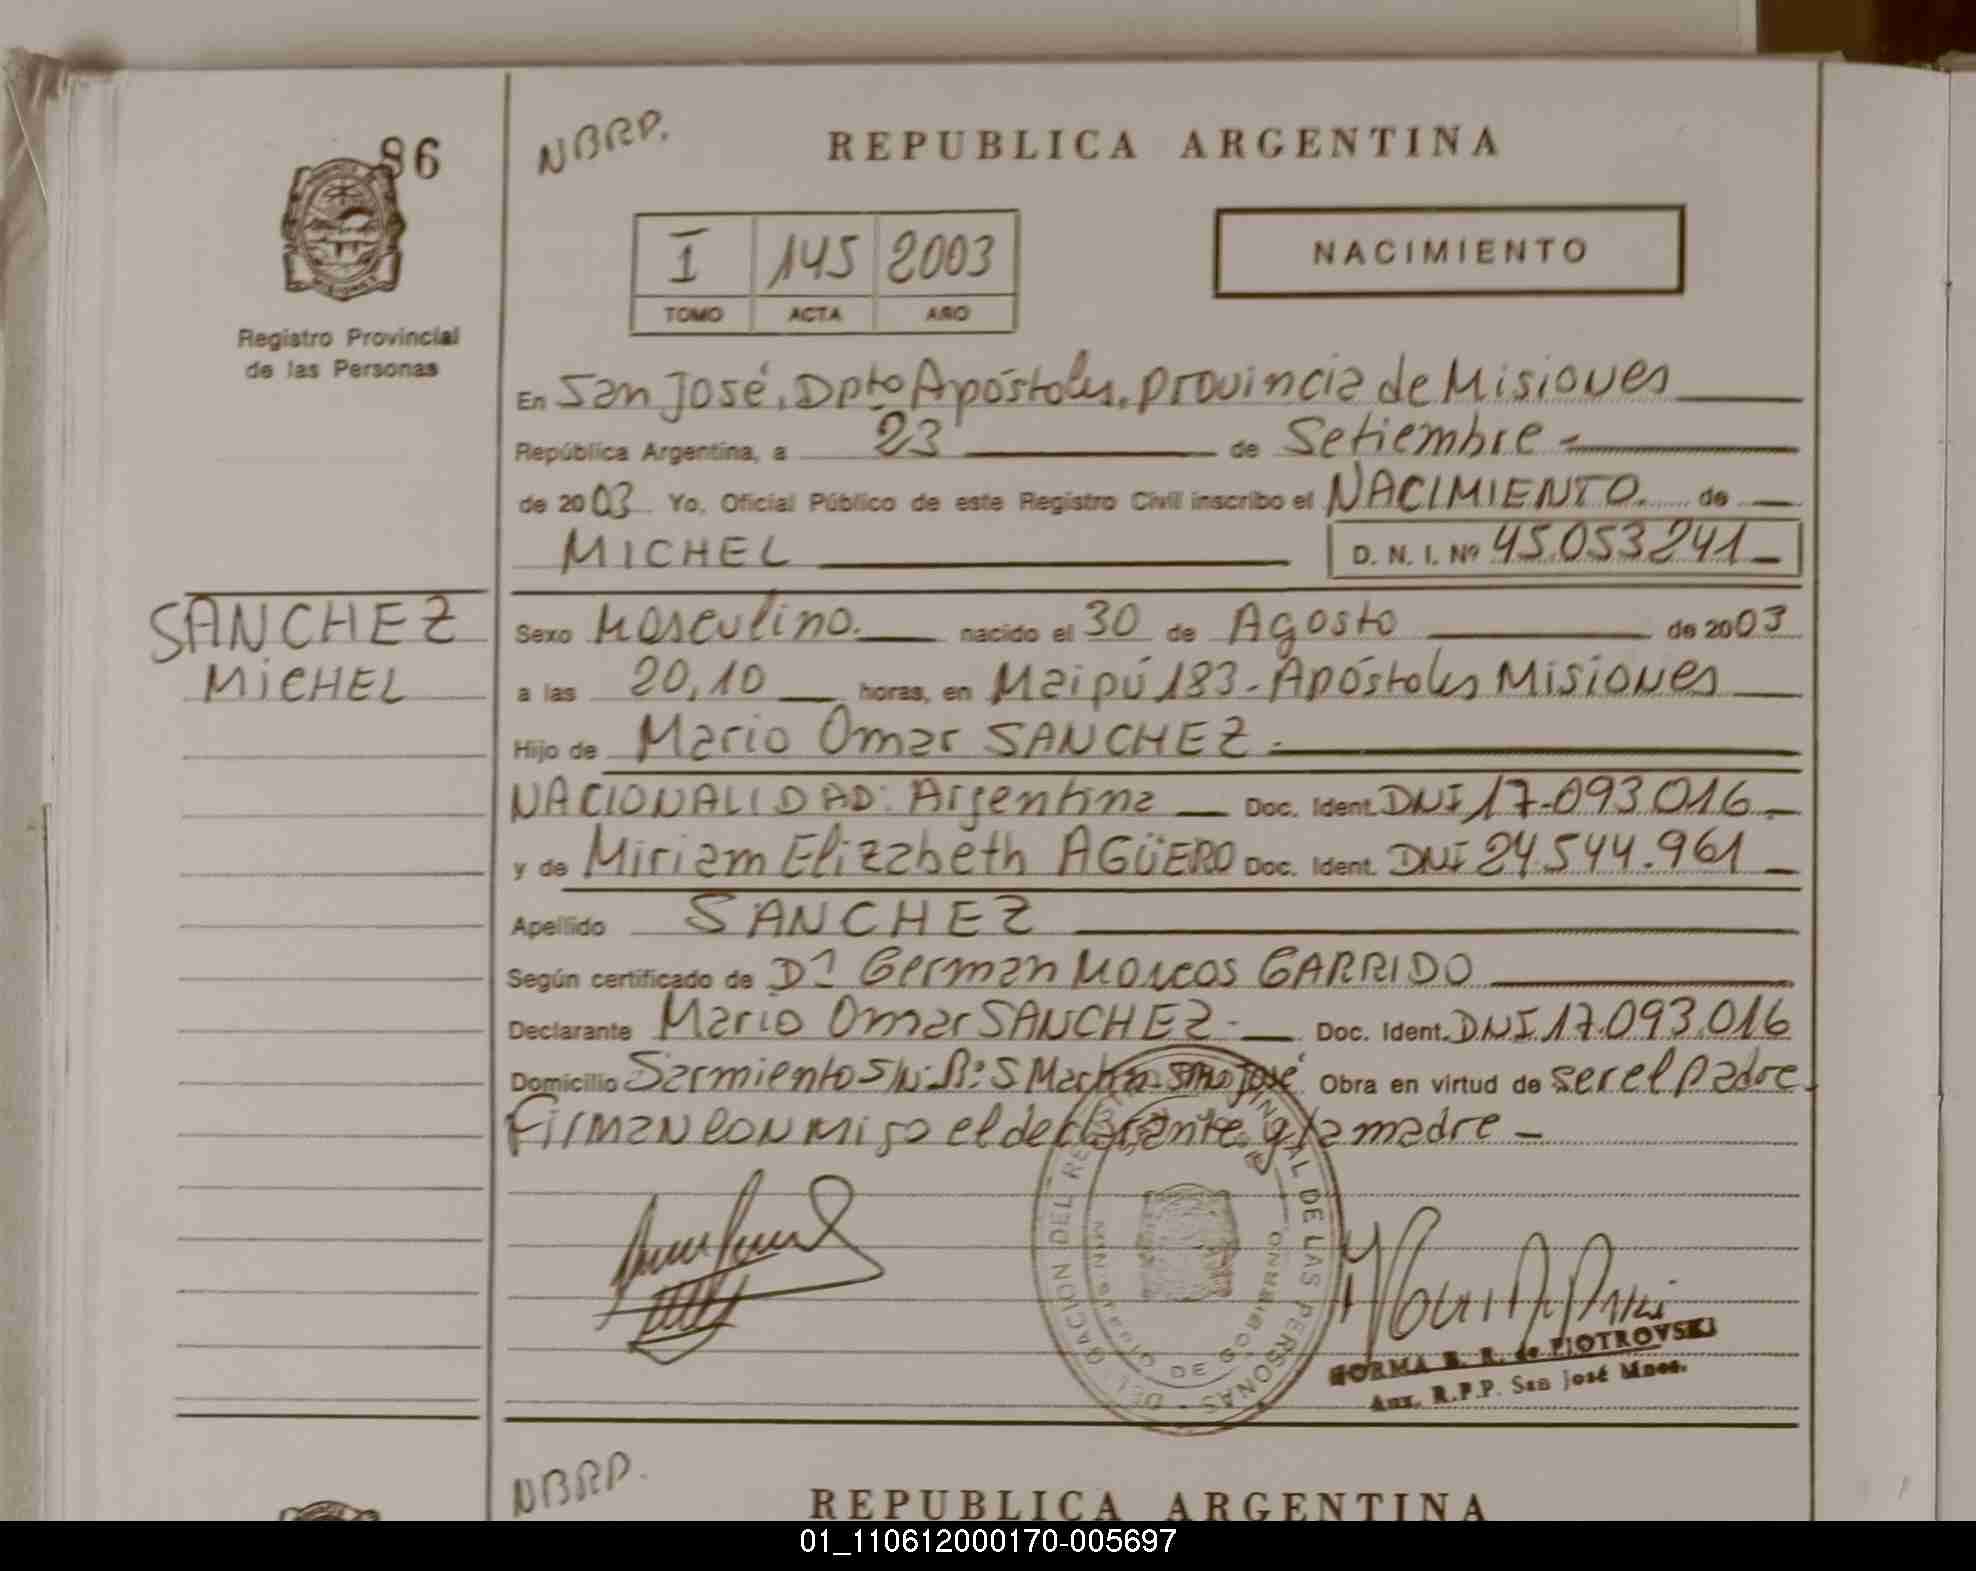 86
NBRP.
REPUBLICA ARGENTINA
I 145 2003
TOMO ACTA AÑO
NACIMIENTO
Registro Provincial
de las Personas
En San José, Dpto Apóstoles, Provincia de Misiones
República Argentina, a 23 de Setiembre
de 2003 Yo, Oficial Público de este Registro Civil inscribo el NACIMIENTO. de
MICHEL D. N. I. Nº 45.053241
SANCHEZ
MICHEL
Sexo Masculino. nacido el 30 de Agosto de 2003
a las 20,10 horas, en Maipú 183 - Apóstoles Misiones
Hijo de Mario Omar SANCHEZ
NACIONALIDAD: Argentina Doc. Ident. DNI 17.093.016
y de Miriam Elizabeth AGÜERO Doc. Ident. DNI 24.544.961
Apellido SANCHEZ
Según certificado de Dr German Marcos GARRIDO
Declarante Mario Omar SANCHEZ Doc. Ident. DNI 17.093.016
Domicilio Sarmiento S/N Bº S Martin José Obra en virtud de ser el padre.
Firman conmigo el declarante y la madre
DELEGACION DEL REGISTRO PROVINCIAL DE LAS PERSONAS
MINISTERIO DE GOBIERNO
NORMA B. R. de PIOTROVSKI
Aux. R.P.P. San José Mnes.
NBRP.
REPUBLICA ARGENTINA
01_110612000170-005697